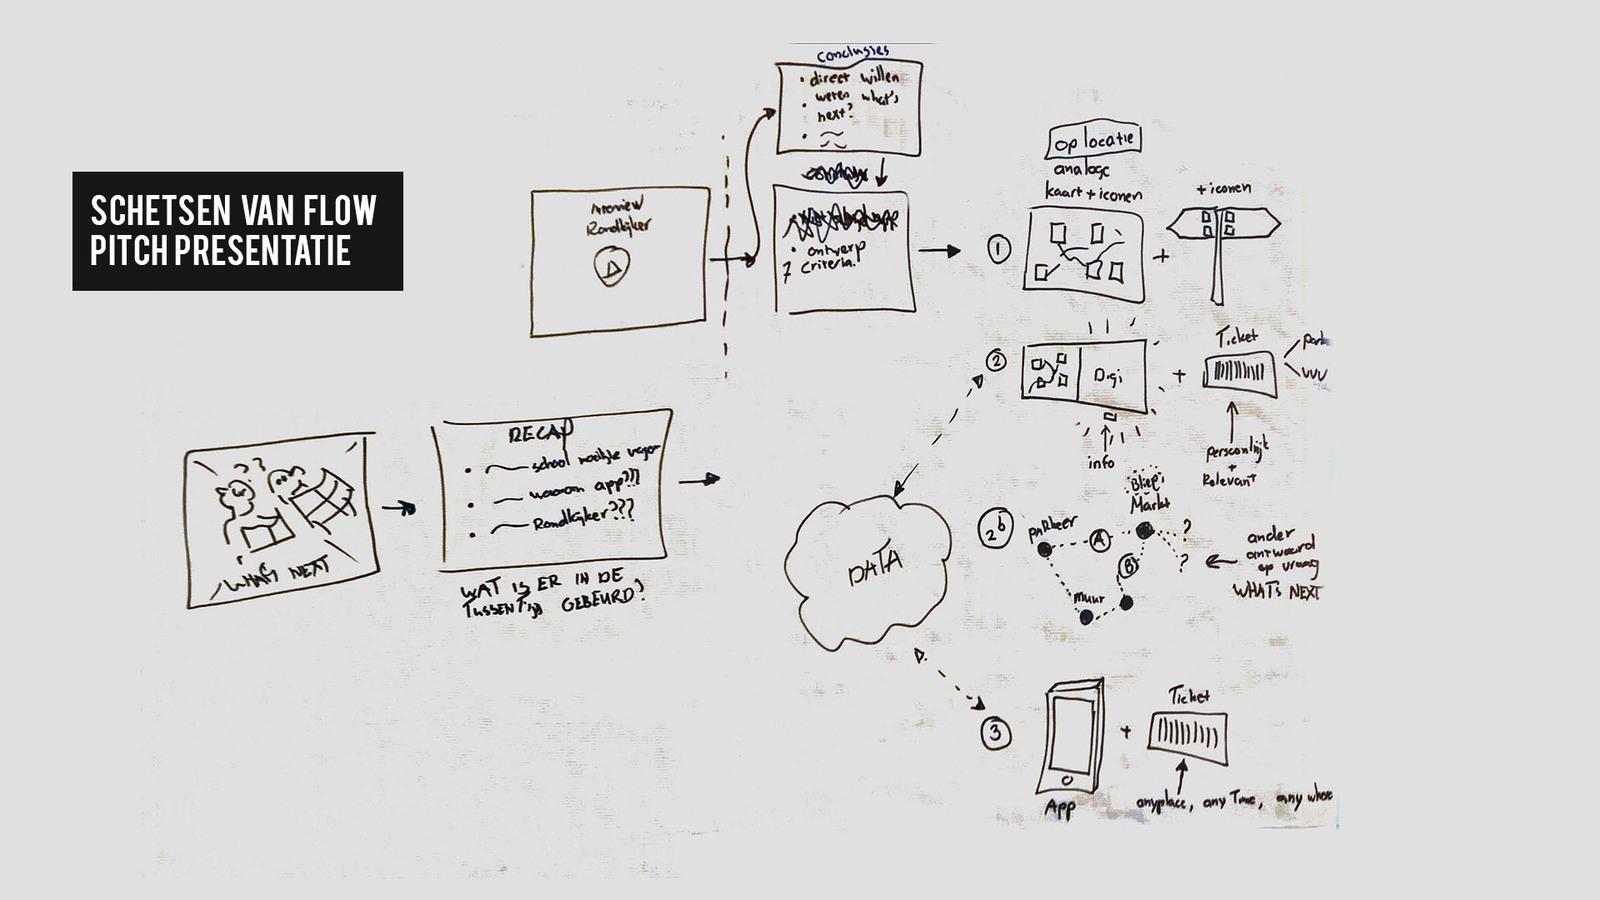 SCHETSEN VAN FLOW
PITCH PRESENTATIE
WHAT'S NEXT
??
RECAP
school moeilijke vragen
waarom app???
Rondkijker???
WAT IS ER IN DE
TUSSENTIJD GEBEURD?
Rondkijker
conclusies
direct willen
weten what's
next?
ontwerp
criteria.
op locatie
analoge
kaart + iconen
1
+
+ iconen
2
Digi
+
Ticket
VVV
info
persoonlijk
+
Relevant
DATA
2b
parkeer
A
Bliep!
Markt
B
muur
?
?
ander
antwoord
op vraag
WHAT'S NEXT
3
App
+
Ticket
anyplace, any Time, any where